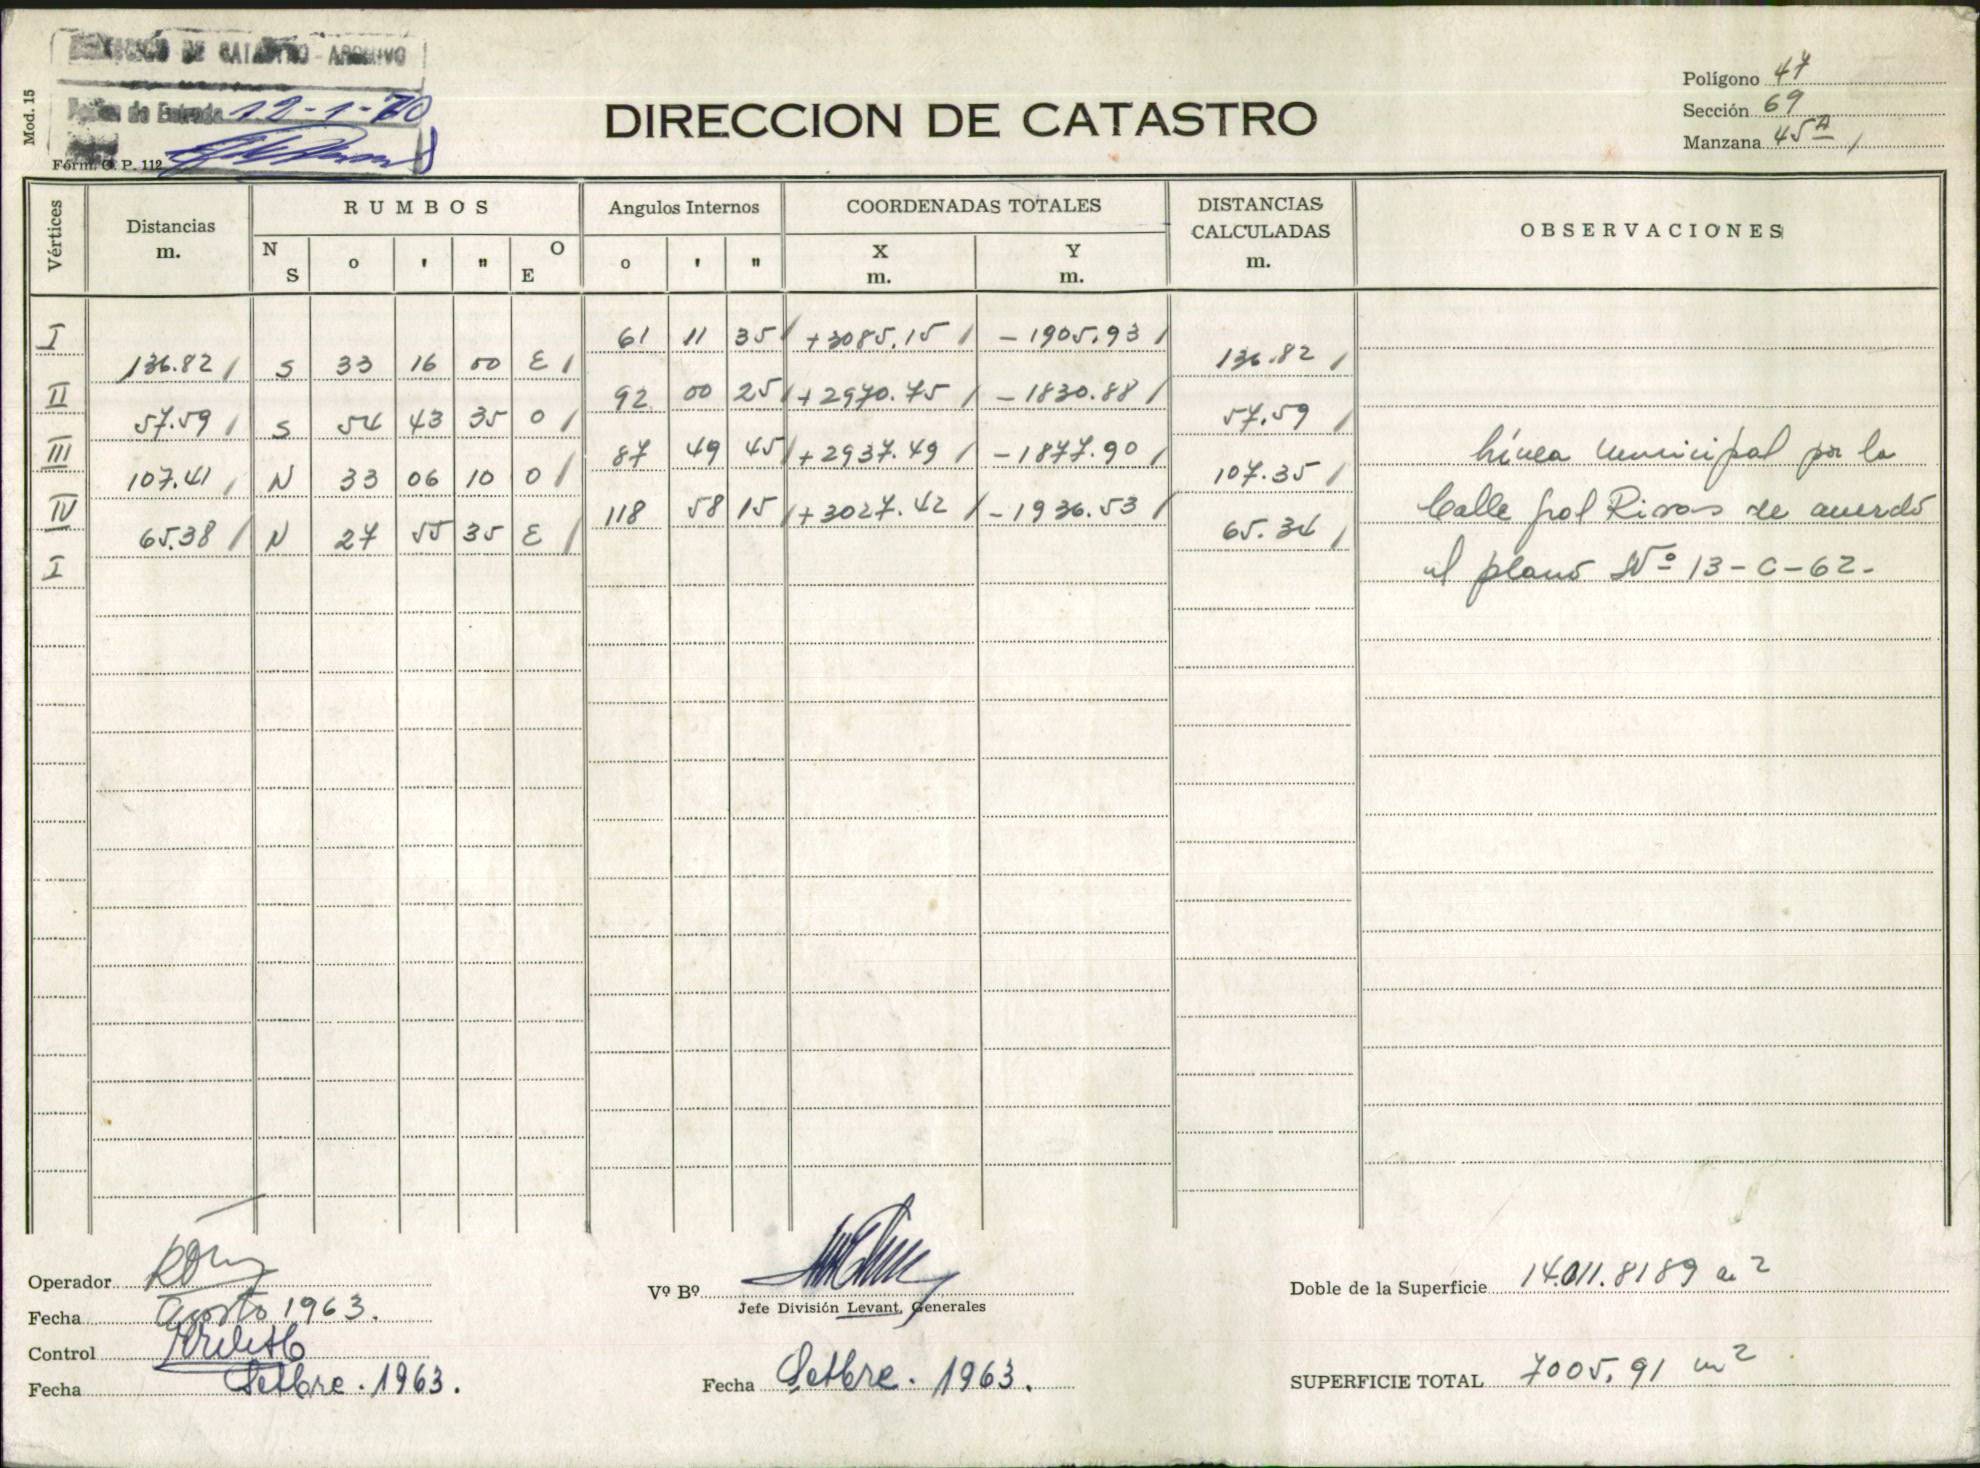 DIRECCION DE CATASTRO - ARCHIVO
Fecha de Entrada 12-1-70
Mod. 15
Form. O. P. 112
DIRECCION DE CATASTRO
Polígono 47
Sección 69
Manzana 45A
Vértices
Distancias
m.
RUMBOS
N S o ' " O E
Angulos Internos
o ' "
COORDENADAS TOTALES
X
m.
Y
m.
DISTANCIAS
CALCULADAS
m.
OBSERVACIONES
I 61 11 35 +3085.15 -1905.93
136.82 S 33 16 00 E 136.82
II 92 00 25 +2970.75 -1830.88
57.59 S 54 43 35 O 57.59
III 87 49 45 +2937.49 -1877.90
107.41 N 33 06 10 O 107.35
IV 118 58 15 +3027.42 -1936.53
65.38 N 27 55 35 E 65.34
I
Línea Municipal por la
Calle Gral Rivas de acuerdo
al plano Nº 13-C-62.-
Operador
Fecha Agosto 1963.
Control
Fecha Setbre. 1963.
Vº Bº
Jefe División Levant. Generales
Fecha Setbre. 1963.
Doble de la Superficie 14.011.8189 m2
SUPERFICIE TOTAL 7005,91 m2